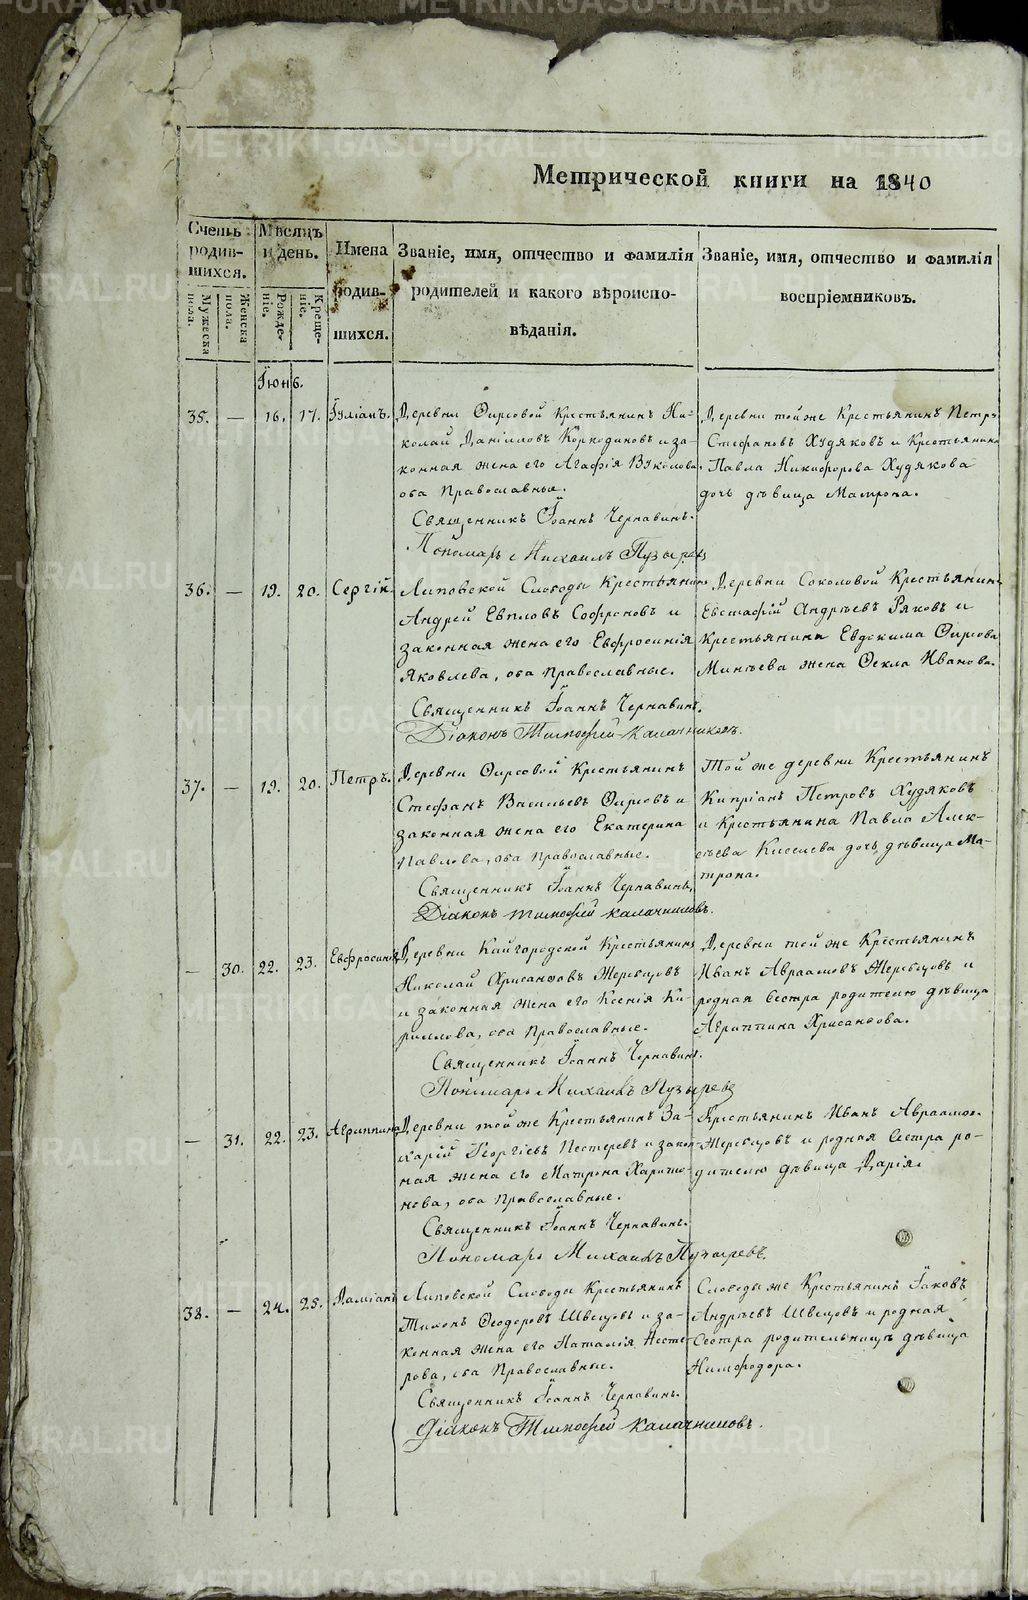 Метрической книги на 1840
Счетъ родив-шихся.
Мужеска пола.
Женска пола.
Мѣсяцъ и день.
Рожде-ніе.
Креще-ніе.
Имена родив-шихся.
Званіе, имя, отчество и фамилія
родителей и какого вѣроиспо-
вѣданія.
Званіе, имя, отчество и фамилія
воспріемниковъ.
Іюнь.
35. — 16. 17. Іуліанъ.
Деревни Фирсовой Крестьянинъ Ни-
колай Даніиловъ Коркодиновъ и за-
конная жена его Агафія Вуколова
оба Православные.
Священникъ Іоаннъ Чернавинъ.
Пономарь Михаилъ Пузыревъ
Деревни той же Крестьянинъ Петръ
Стефановъ Худяковъ и Крестьянина
Павла Никифорова Худякова
дочь дѣвица Матрона.
36. — 19. 20. Сергій.
Липовской Слободы Крестьянинъ
Андрей Евпловъ Софроновъ и
законная жена его Евфросинія
Яковлева, оба Православные.
Священникъ Іоаннъ Чернавинъ.
Діаконъ Тимофей Калачниковъ.
Деревни Соколовой Крестьянинъ
Евстафій Андрѣевъ Ряковъ и
Крестьянина Евдокима Фирсова
Минѣева жена Фекла Иванова.
37. — 19. 20. Петръ.
Деревни Фирсовой Крестьянинъ
Стефанъ Васильевъ Фирсовъ и
законная жена его Екатерина
Павлова, оба Православные.
Священникъ Іоаннъ Чернавинъ.
Діаконъ Тимофей Калачниковъ.
Той же деревни Крестьянинъ
Кипріанъ Петровъ Худяковъ
и Крестьянина Павла Алек-
сѣева Киселева дочь дѣвица Ма-
трона.
— 30. 22. 23. Евфросинія
Деревни Кайгородской Крестьянинъ
Николай Хрисанфовъ Жеребцовъ
и законная жена его Ксенія Ки-
риллова, оба Православные.
Священникъ Іоаннъ Чернавинъ.
Пономарь Михаилъ Пузыревъ
Деревни той же Крестьянинъ
Иванъ Авраамовъ Жеребцовъ и
родная Сестра родителю дѣвица
Агриппина Хрисанфова.
— 31. 22. 23. Агриппина
Деревни той же Крестьянинъ За-
харій Георгіевъ Нестеровъ и закон-
ная жена его Матрона Харито-
нова, оба Православные.
Священникъ Іоаннъ Чернавинъ.
Пономарь Михаилъ Пузыревъ.
Крестьянинъ Иванъ Авраамовъ
Жеребцовъ и родная Сестра ро-
дителю дѣвица Дарія.
38. — 24. 25. Даміанъ
Липовской Слободы Крестьянинъ
Тихонъ Феодоровъ Швецовъ и за-
конная жена его Наталія Несте-
рова, оба Православные.
Священникъ Іоаннъ Чернавинъ.
Діаконъ Тимофей Калачниковъ.
Слободы же Крестьянинъ Іаковъ
Андрѣевъ Швецовъ и родная
Сестра родительницы дѣвица
Нимфодора.
METRIKI.GASO-URAL.RU